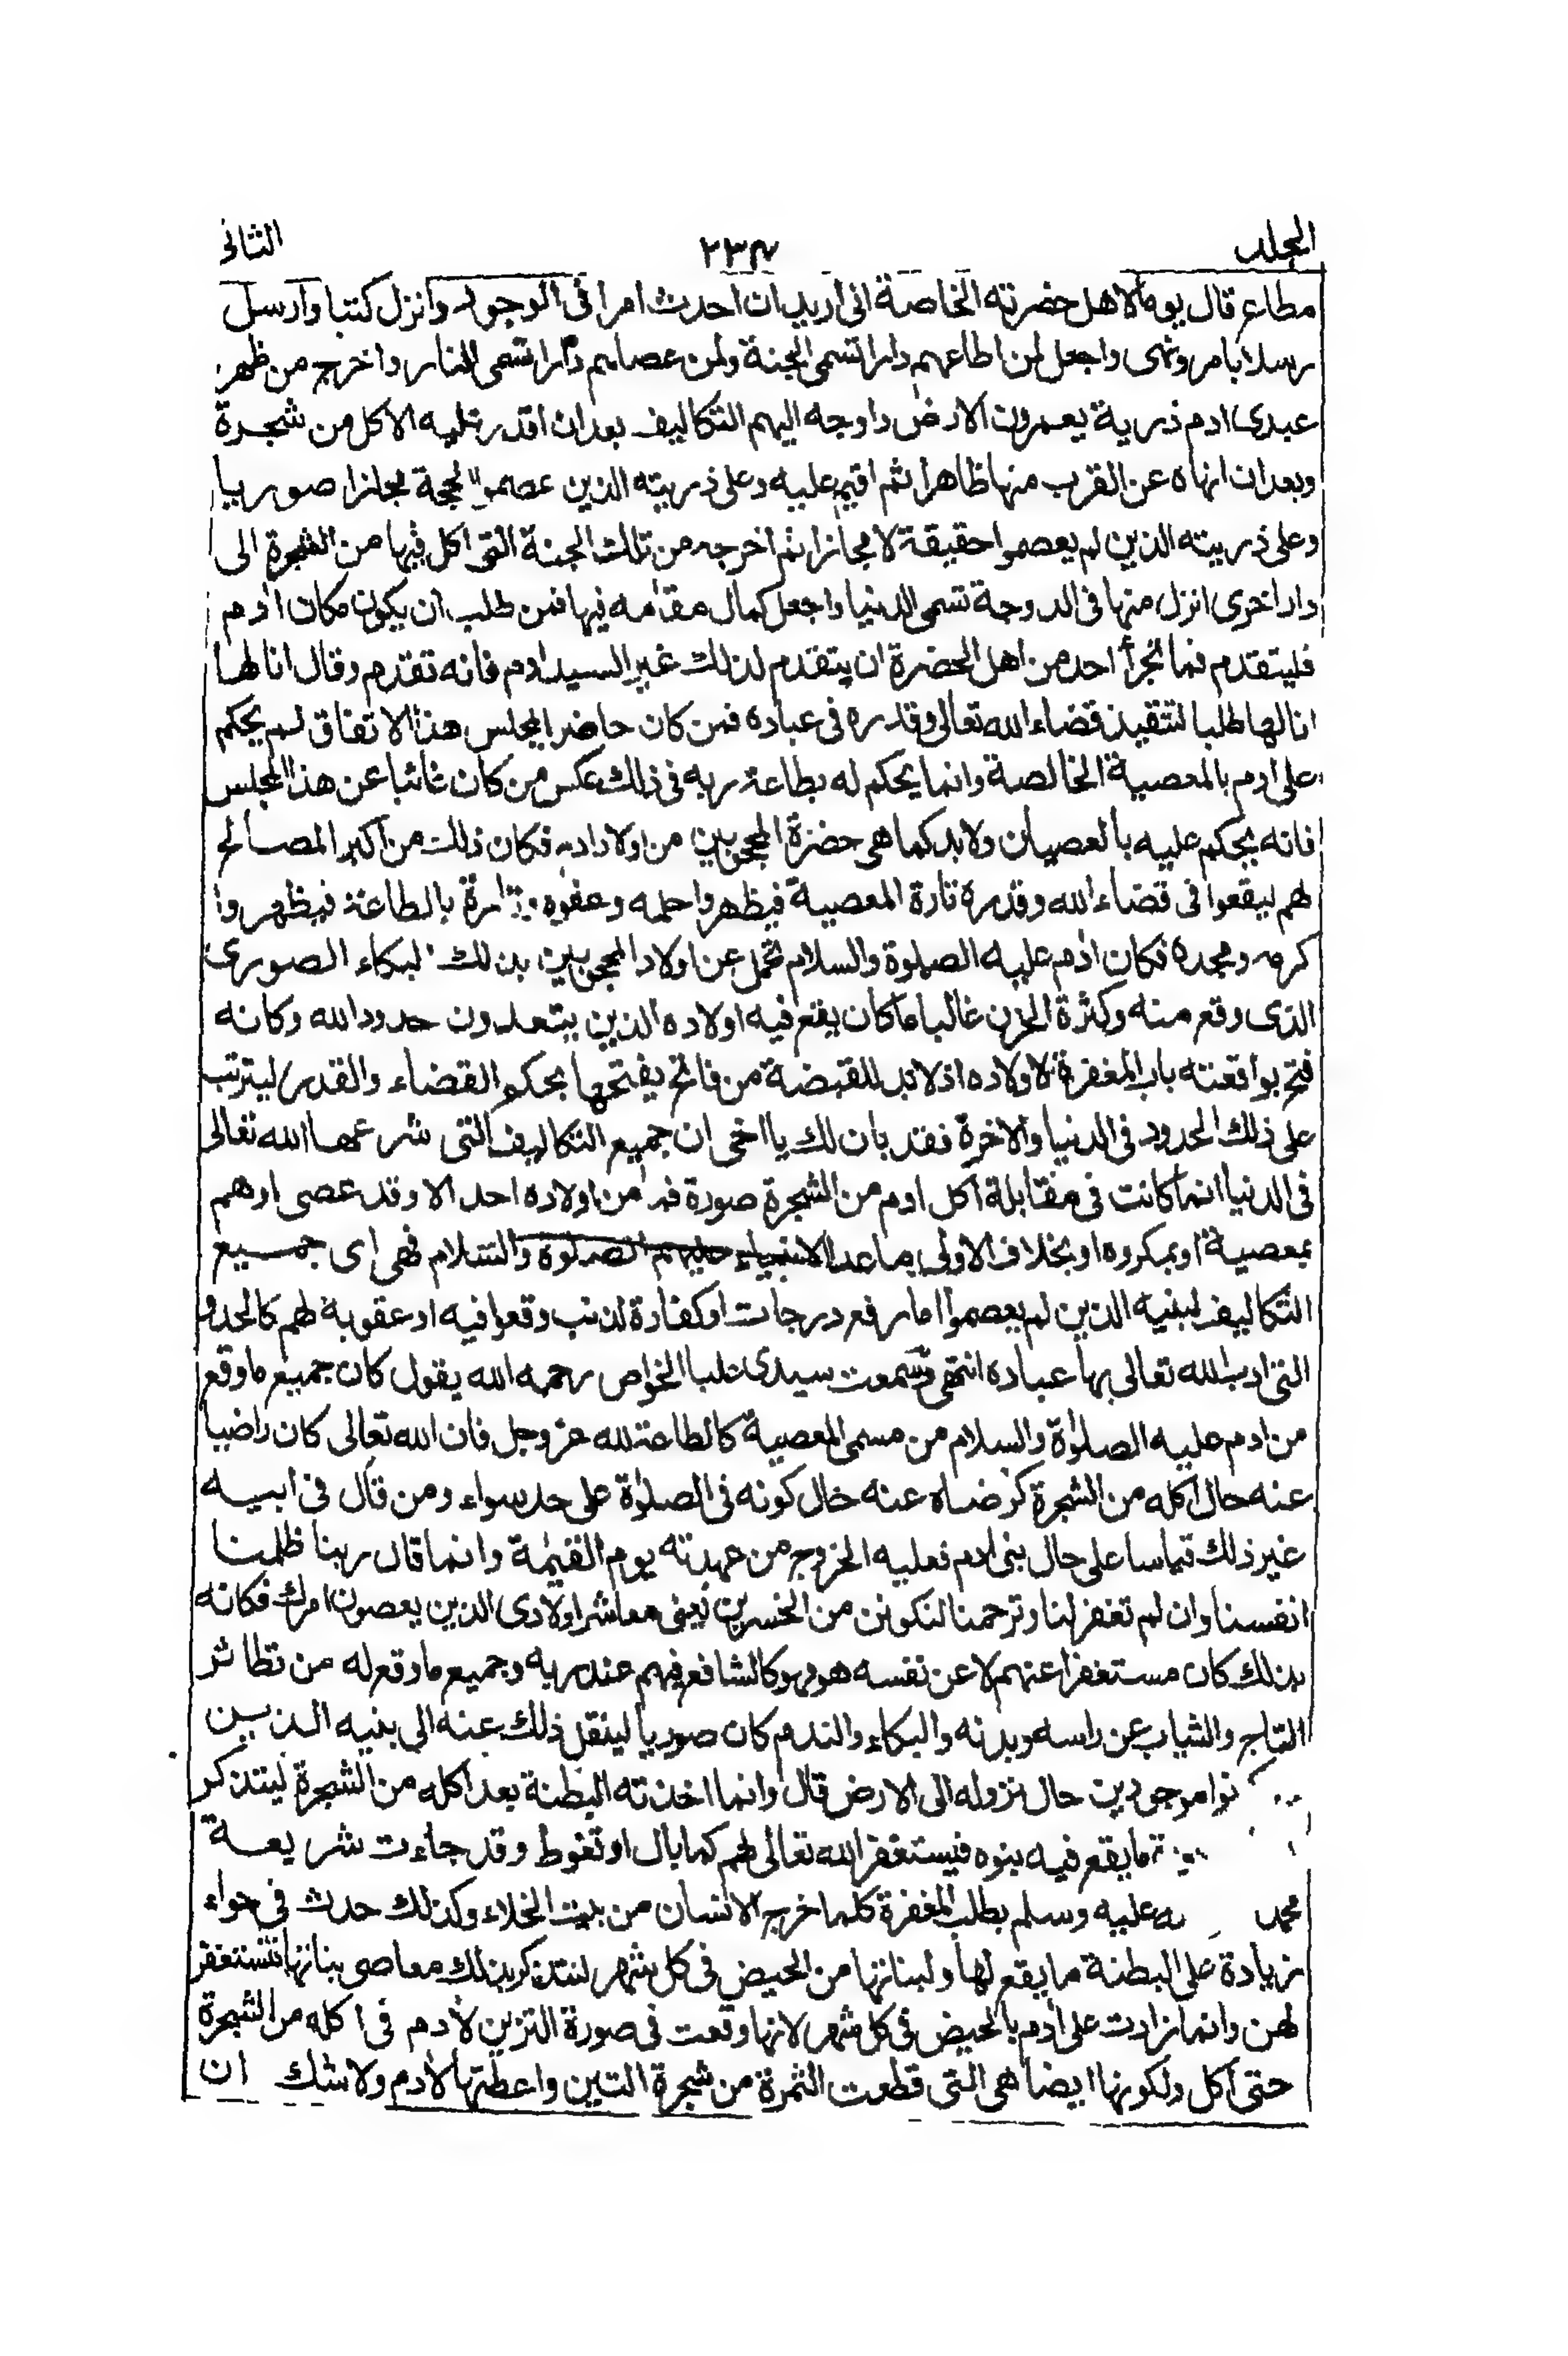 المجلد ٢٣٨ الثانى
مطاع قال يوما لاهل حضرته الخاصة انى اريد ان احدث امرا فى الوجود وانزل كتبا وارسل
رسلا بامر ونهى واجعل لمن اطاعهم دارا تسمى الجنة ولمن عصاهم دارا تسمى النار واخرج من ظهر
عبدى ادم ذرية يعمرون الارض واوجه اليهم التكاليف بعد ان اقدر عليه الاكل من شجرة
وبعد ان انهاه عن القرب منها ظاهرا ثم اقيم عليه وعلى ذريته الذين عصموا الحجة مجازا صوريا
وعلى ذريته الذين لم يعصموا حقيقة لا مجازا ثم اخرجه من تلك الجنة التى اكل فيها من الشجرة الى
دار اخرى انزل منها فى الدرجة تسمى الدنيا واجعل كمال مقامه فيها فمن طلب ان يكون مكان ادم
فليتقدم فما تجرأ احد من اهل الحضرة ان يتقدم لذلك غير السيد ادم فانه تقدم وقال انا لها
انا لها طلبا لتنفيذ قضاء الله تعالى وقدره فى عباده فمن كان حاضر المجلس هذا الاتفاق لم يحكم
على ادم بالمعصية الخالصة وانما يحكم له بطاعة ربه فى ذلك عكس من كان غائبا عن هذا المجلس
فانه يحكم عليه بالعصيان ولابد كما هى حضرة المحجوبين من اولاد ادم فكان ذلك من اكبر المصالح
لهم ليقعوا فى قضاء الله وقدره تارة المعصية فيظهروا حلمه وعفوه وتارة بالطاعة فيظهروا
كرمه ومجده فكان ادم عليه الصلوة والسلام تحمل عن اولاد المحجوبين بذلك البكاء الصورى
الذى وقع منه وكثرة الحزن غالبا ما كان يقع فيه اولاده الذين يتعدون حدود الله وكانه
فتح بواقعته باب المغفرة لاولاده اذ لابد للقبضة من فاتح يفتحها بحكم القضاء والقدر ليترتب
على ذلك الحدود فى الدنيا والاخرة فقد بان لك يا اخى ان جميع التكاليف التى شرعها الله تعالى
فى الدنيا انما كانت فى مقابلة اكل ادم من الشجرة صورة فما من اولاده احد الا وقد عصى اوهم
بمعصية او بمكروه او بخلاف الاولى ما عدا الانبياء عليهم الصلوة والسلام فهى اى جميع
التكاليف لبنيه الذين لم يعصموا اما رفع درجات او كفارة لذنب وقعوا فيه او عقوبة لهم كالحدو
التى ادب الله تعالى بها عباده انتهى وسمعت سيدى عليا الخواص رحمه الله يقول كان جميع ما وقع
من ادم عليه الصلوة والسلام من مسمى المعصية كالطاعة لله عز وجل فان الله تعالى كان راضيا
عنه حال اكله من الشجرة كرضاه عنه حال كونه فى الصلوة على حد سواء ومن قال فى ابيه
غير ذلك قياسا على حال بنى ادم فعليه الخروج من عهدته يوم القيمة وانما قال ربنا ظلمنا
انفسنا وان لم تغفر لنا وترحمنا لنكونن من الخسرين يعنى معاشر اولادى الذين يعصون امرك فكانه
بذلك كان مستغفرا عنهم لا عن نفسه هو فهو كالشافع فيهم عند ربه وجميع ما وقع له من تطائر
التاج والثياب عن راسه وبدنه والبكاء والندم كان صوريا لينقل ذلك عنه الى بنيه الذين
نوا موجودين حال نزوله الى الارض قال وانما اخذته البطنة بعد اكله من الشجرة ليتذكر
ما يقع فيه بنوه فيستغفر الله تعالى لهم كما بال او تغوط وقد جاءت شريعة
محمد عليه وسلم بطلب المغفرة كلما خرج الانسان من بيت الخلاء وكذلك حدث فى حواء
زيادة على البطنة ما يقع لها ولبناتها من الحيض فى كل شهر لتتذكر بذلك معاصى بناتها فتستغفر
لهن وانما زادت على ادم بالحيض فى كل شهر لانها وقعت فى صورة التزين لادم فى اكله من الشجرة
حتى اكل ولكونها ايضا هى التى قطعت الثمرة من شجرة التين واعطتها لادم ولا شك ان